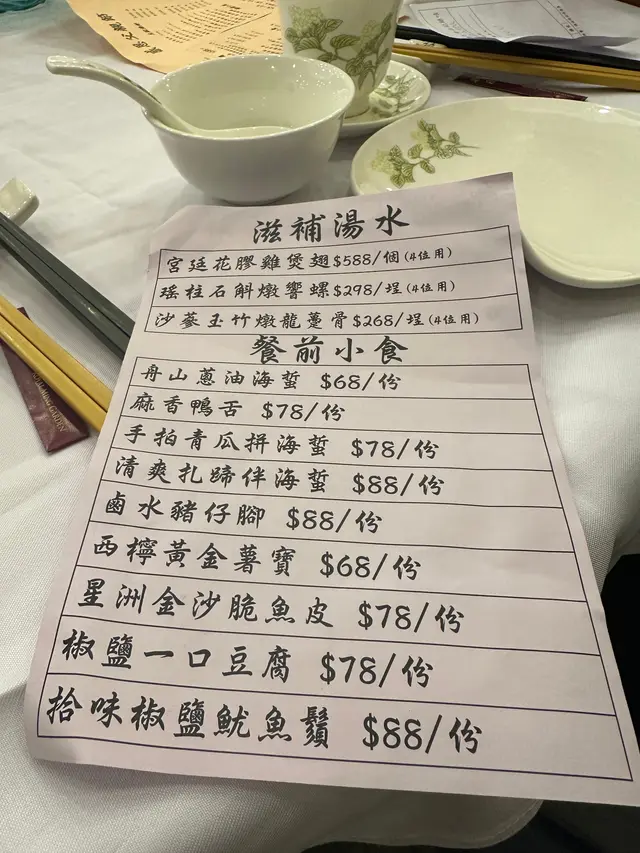 滋補湯水
宮廷花膠雞煲翅$588/個(4位用)
瑤柱石斛燉響螺$298/埕(4位用)
沙蔘玉竹燉龍躉骨$268/埕(4位用)
餐前小食
舟山蔥油海蜇 $68/份
麻香鴨舌 $78/份
手拍青瓜拼海蜇 $78/份
清爽扎蹄伴海蜇 $88/份
鹵水豬仔腳 $88/份
西檸黃金薯寶 $68/份
星洲金沙脆魚皮 $78/份
椒鹽一口豆腐 $78/份
拾味椒鹽魷魚鬚 $88/份